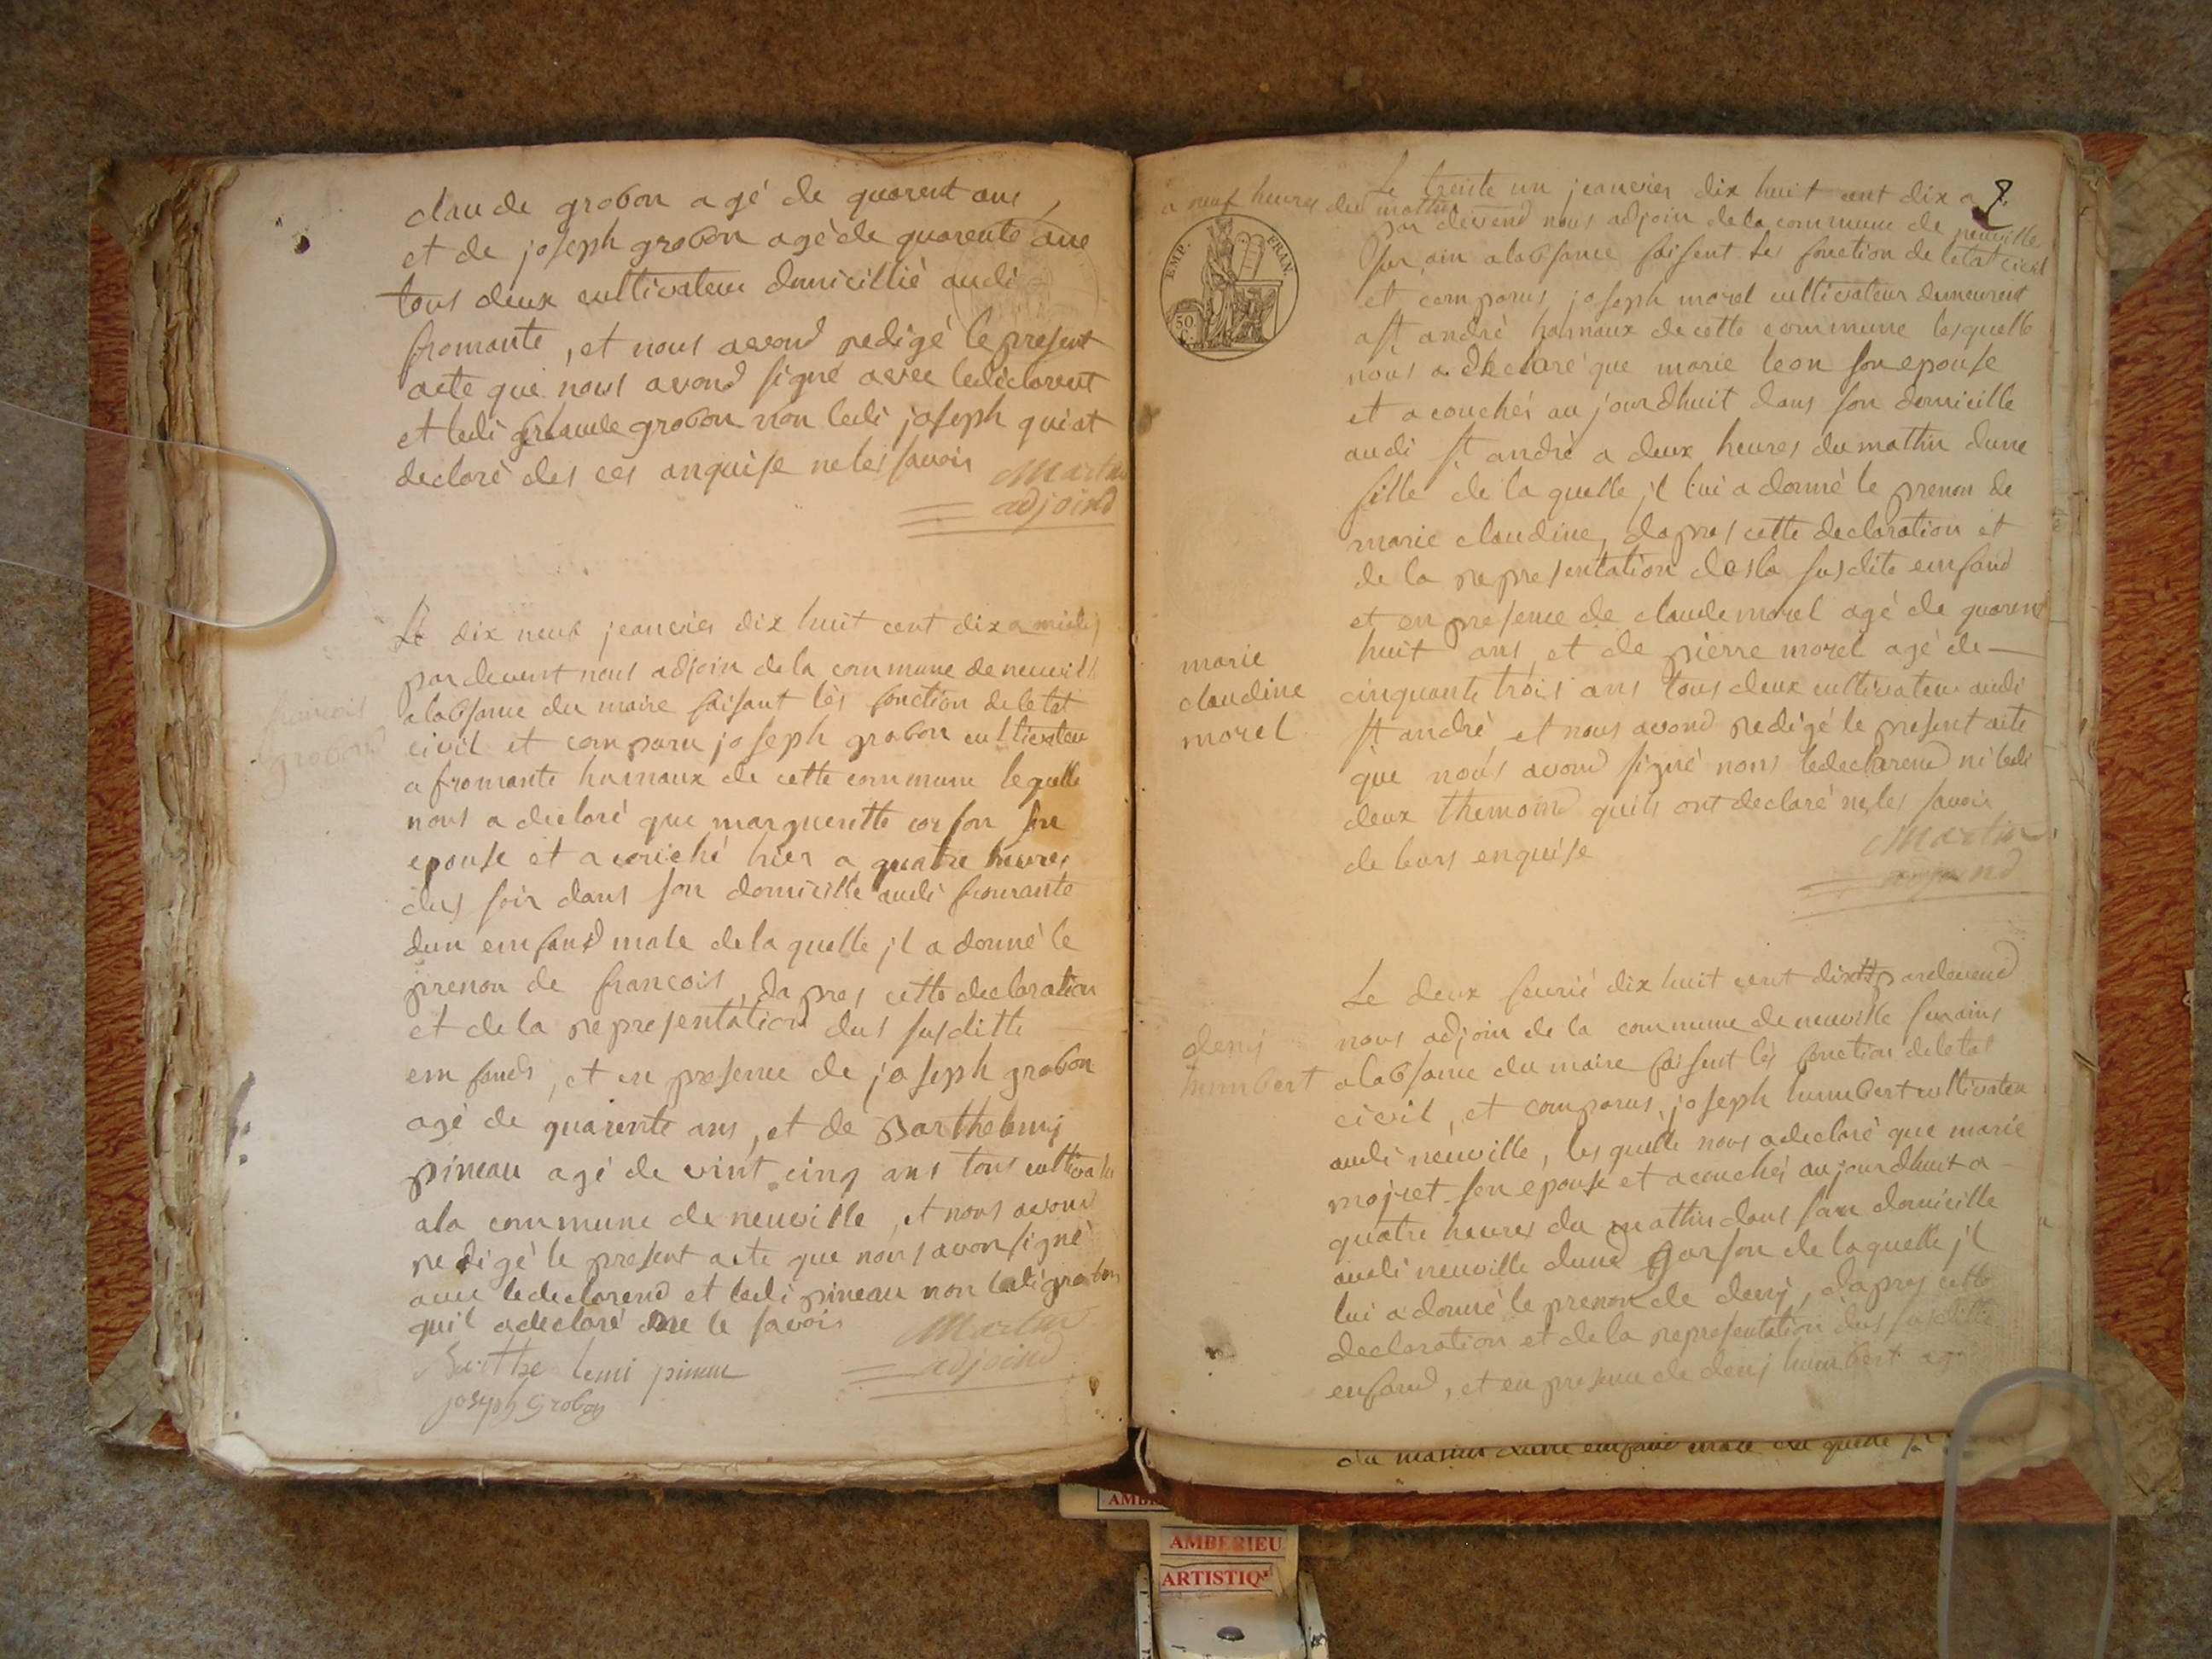 claude grobon agé de quarent ans,
et de joseph grobon agè de quarente ans
tous deux cultivateur domicillié audi
fromante, et nous avond redigé le present
acte que nous avond signé avec ledeclarent
et ledi claude grobon non ledi joseph qui at
declaré des ces anquise neles savoir
Martin
adjoind
Le dix neuf jeanvier dix huit cent dix a midi
pardevent nous adjoin de la commune de neuville
alabsance du maire faisant lès fonction deletat
francois
civil et comparu joseph grobon cultivateur
grobond
a fromante hamaux de cette commune lequelle
nous a declaré que margueritte son
epouse et acouché hier a quatre heures
dus soir dans son domicille audi fromante
dun emfand male dela quelle jl a donné le
prenon de francois, dapres cette declaration
et dela representation dus susditte
emfands, et en presence de joseph grobon
agé de quarente ans, et de Barthelemj
pineau agé de vint cinq ans tous cultivateur
ala commune de neuville, et nous avond
redigé le present acte que nous avon signé
avec ledeclarend et ledi pineau non ledi grobon
quil adeclaré ne le savoir
Martin
adjoind
Barthelemi pineau
joseph Grobon
2
Le trente un jeanvier dix huit cent dix a
a neuf heures du mathin
par devend nous adjoin dela commune de neuville
sur ain alabsance faisent les fonction de letat civil
EMP. FRAN.
50. C.
et comparus joseph morel cultivateur demeurent
a st andrè hamaux decette commune lesquelle
nous a declaré que marie leon son epouse
et acouchés aujourdhuit dans son domicille
audi st andrè a deux heures du mathin dune
fille de la quelle jl lui a donné le prenon de
marie claudine, dapres cette declaration et
de la representation desla susdite emfand
et en presence de claude morel agé de quarent
huit ans, et de pierre morel agé de
cinquante trois ans tous deux cultivateur audi
st andrè et nous avond redigé le present acte
que nous avond signé nons ledeclarend ni ledi
deux themoind quils ont declaré neles savoir
de leurs enquise
marie
claudine
morel
Martin
adjoind
Le deux fevrié dix huit cent dix pardevend
nous adjoin de la commune de neuville surains
denj
humbert
alabsance du maire faisent lès fonction deletat
civil, et comparus, joseph humbert cultivateur
audi neuville, lesquelle nous adeclaré que marie
mojret son epouse et acouchés aujourdhuit a
quatre heures du mathin dans son domicille
audi neuville dund garson de laquelle jl
lui a donné le prenon de denj, dapres cette
declaration et dela representation dus susditte
enfand, et en presence de denj humbert agé
du mathin dune emfand male du quelle jl
AMBERIEU
ARTISTIQ